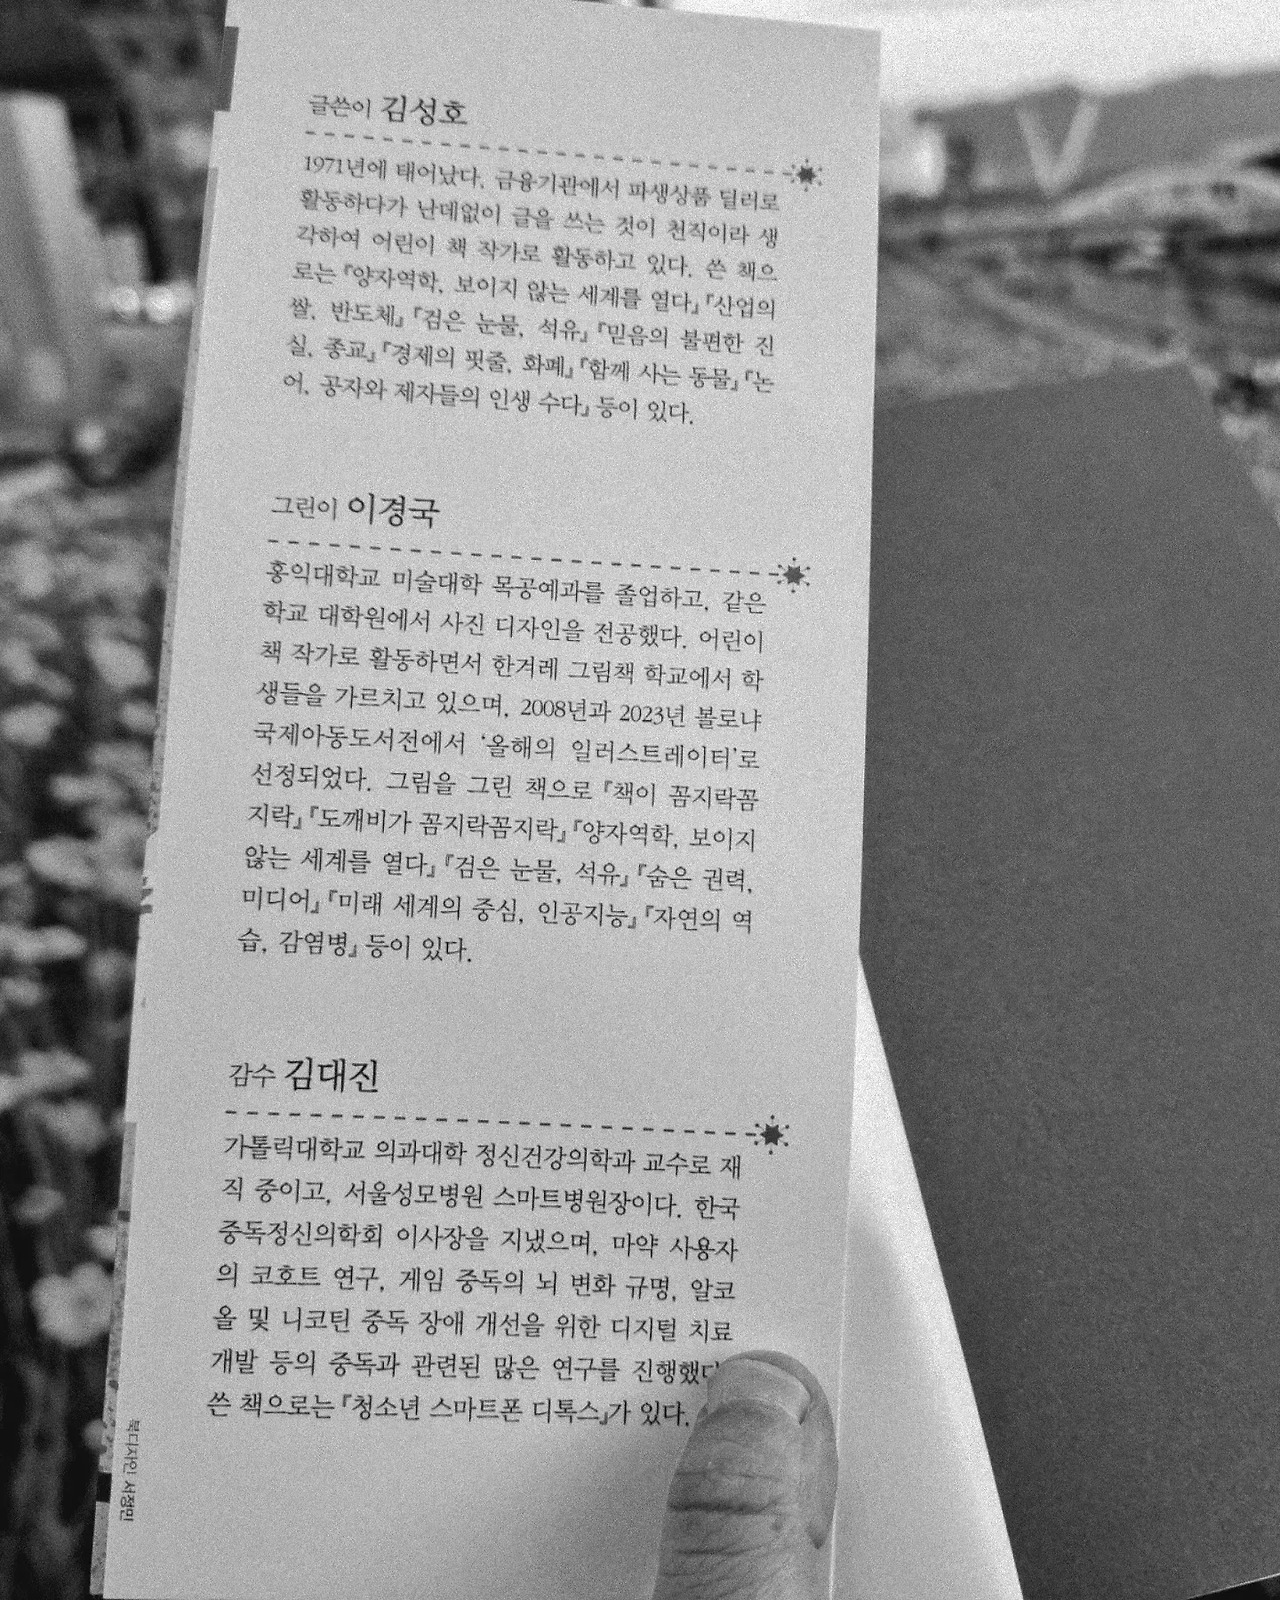 글쓴이 김성호
1971년에 태어났다. 금융기관에서 파생상품 딜러로
활동하다가 난데없이 글을 쓰는 것이 천직이라 생
각하여 어린이 책 작가로 활동하고 있다. 쓴 책으
로는 『양자역학, 보이지 않는 세계를 열다』 『산업의
쌀, 반도체』 『검은 눈물, 석유』 『믿음의 불편한 진
실, 종교』 『경제의 핏줄, 화폐』 『함께 사는 동물』 『논
어, 공자와 제자들의 인생 수다』 등이 있다.
그린이 이경국
홍익대학교 미술대학 목공예과를 졸업하고, 같은
학교 대학원에서 사진 디자인을 전공했다. 어린이
책 작가로 활동하면서 한겨레 그림책 학교에서 학
생들을 가르치고 있으며, 2008년과 2023년 볼로냐
국제아동도서전에서 ‘올해의 일러스트레이터’로
선정되었다. 그림을 그린 책으로 『책이 꼼지락꼼
지락』 『도깨비가 꼼지락꼼지락』 『양자역학, 보이지
않는 세계를 열다』 『검은 눈물, 석유』 『숨은 권력,
미디어』 『미래 세계의 중심, 인공지능』 『자연의 역
습, 감염병』 등이 있다.
감수 김대진
가톨릭대학교 의과대학 정신건강의학과 교수로 재
직 중이고, 서울성모병원 스마트병원장이다. 한국
중독정신의학회 이사장을 지냈으며, 마약 사용자
의 코호트 연구, 게임 중독의 뇌 변화 규명, 알코
올 및 니코틴 중독 장애 개선을 위한 디지털 치료
개발 등의 중독과 관련된 많은 연구를 진행했다
쓴 책으로는 『청소년 스마트폰 디톡스』가 있다.
북디자인 서정민